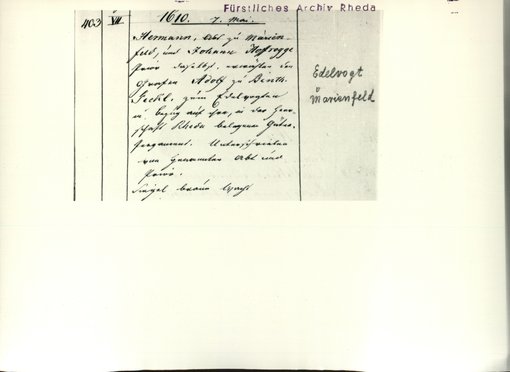 Fürstliches Archiv Rheda
403 VII 1610. 7. Mai.
Hermann, Abt zu Marien-
feld, und Johann
Prior daselbst, erwählen den
Grafen Adolf zu Benth.
Teckl. zum Edelvogten
in Bezug auf ihre, in der Herr-
schaft Rheda belegenen Güter.
Pergament. Unterschrieben
von genannten Abt und
Prior.
Siegel braun Wachs
Edelvogt
Marienfeld